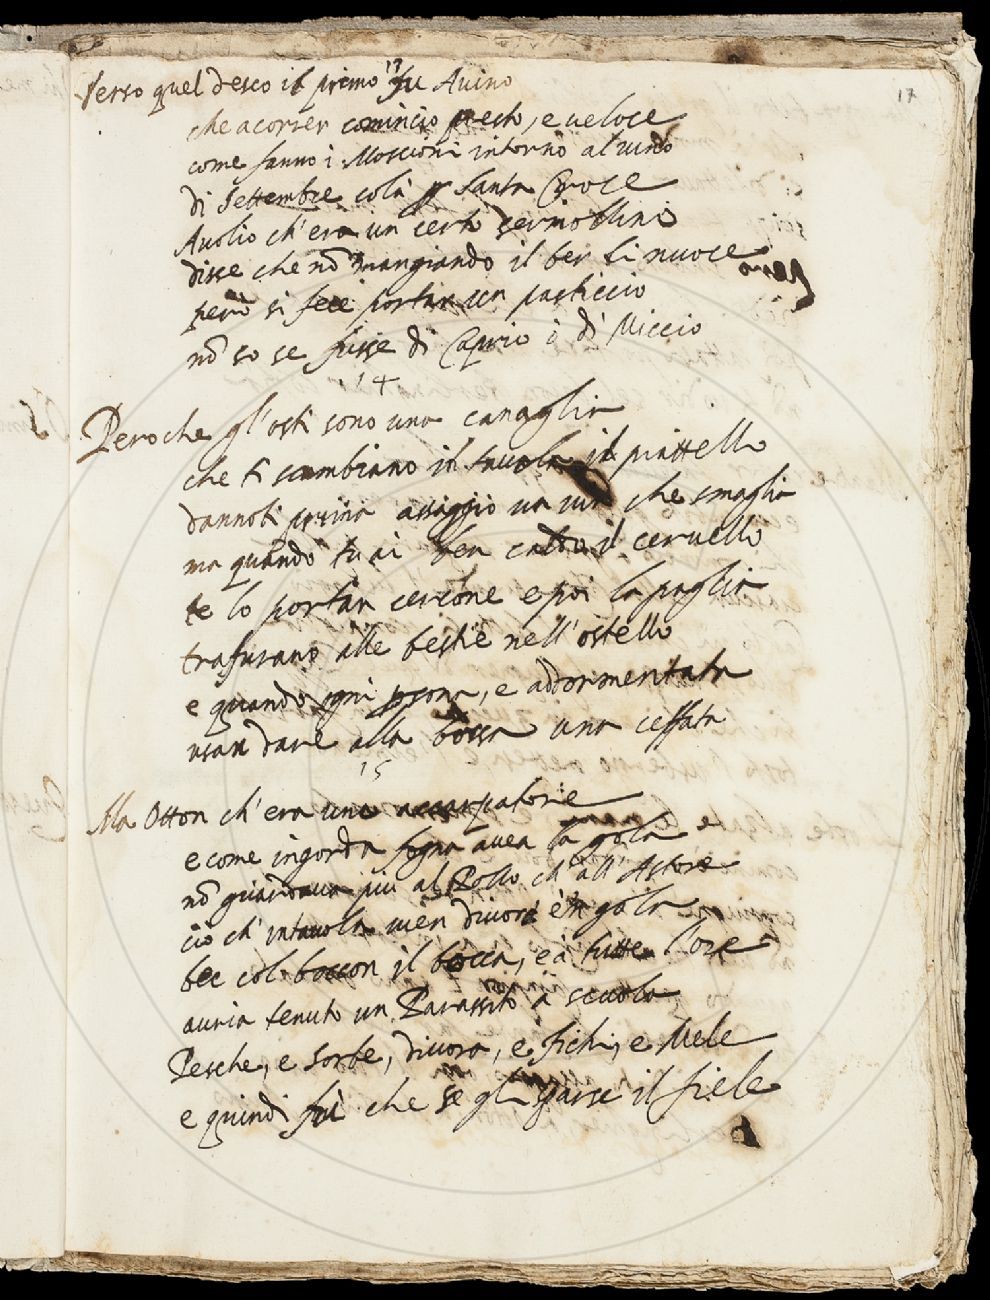 17
13
Verso quel desco il primo fu Avino
che a correr cominciò presto, e veloce
come fanno i Moscioni intorno al vino
di Settembre colà p Santa Croce
Avolio ch'era un certo sermollino
disse che nõ mangiando il ber li nuoce
però si fece portar un pasticcio
nõ so se fusse di Caprio ò di Miccio
14
Peroche gl'osti sono una canaglia
che ti scambiano in tavola il piattello
dannoti prima assaggio un vin che smaglia
ma quando tu ai ben caldo il cervello
te lo portan cercone e poi la paglia
trafusano alle bestie nell'ostello
e quando ogni psona, e addormentata
usan dare alla borsa una ceffata
15
Ma Otton ch'era uno
e come ingorda fogna avea la gola
nõ guardava più al Pollo ch'all'Astore
ciò ch'intavola vien divora e'ngola
bee col boccon il bocca, e à tutte l'ore
auria tenuto un Parassito a scuola
Pesche, e Sorbe, divora, e fichi, e Mele
e quindi fù che se gli sparse il fiele